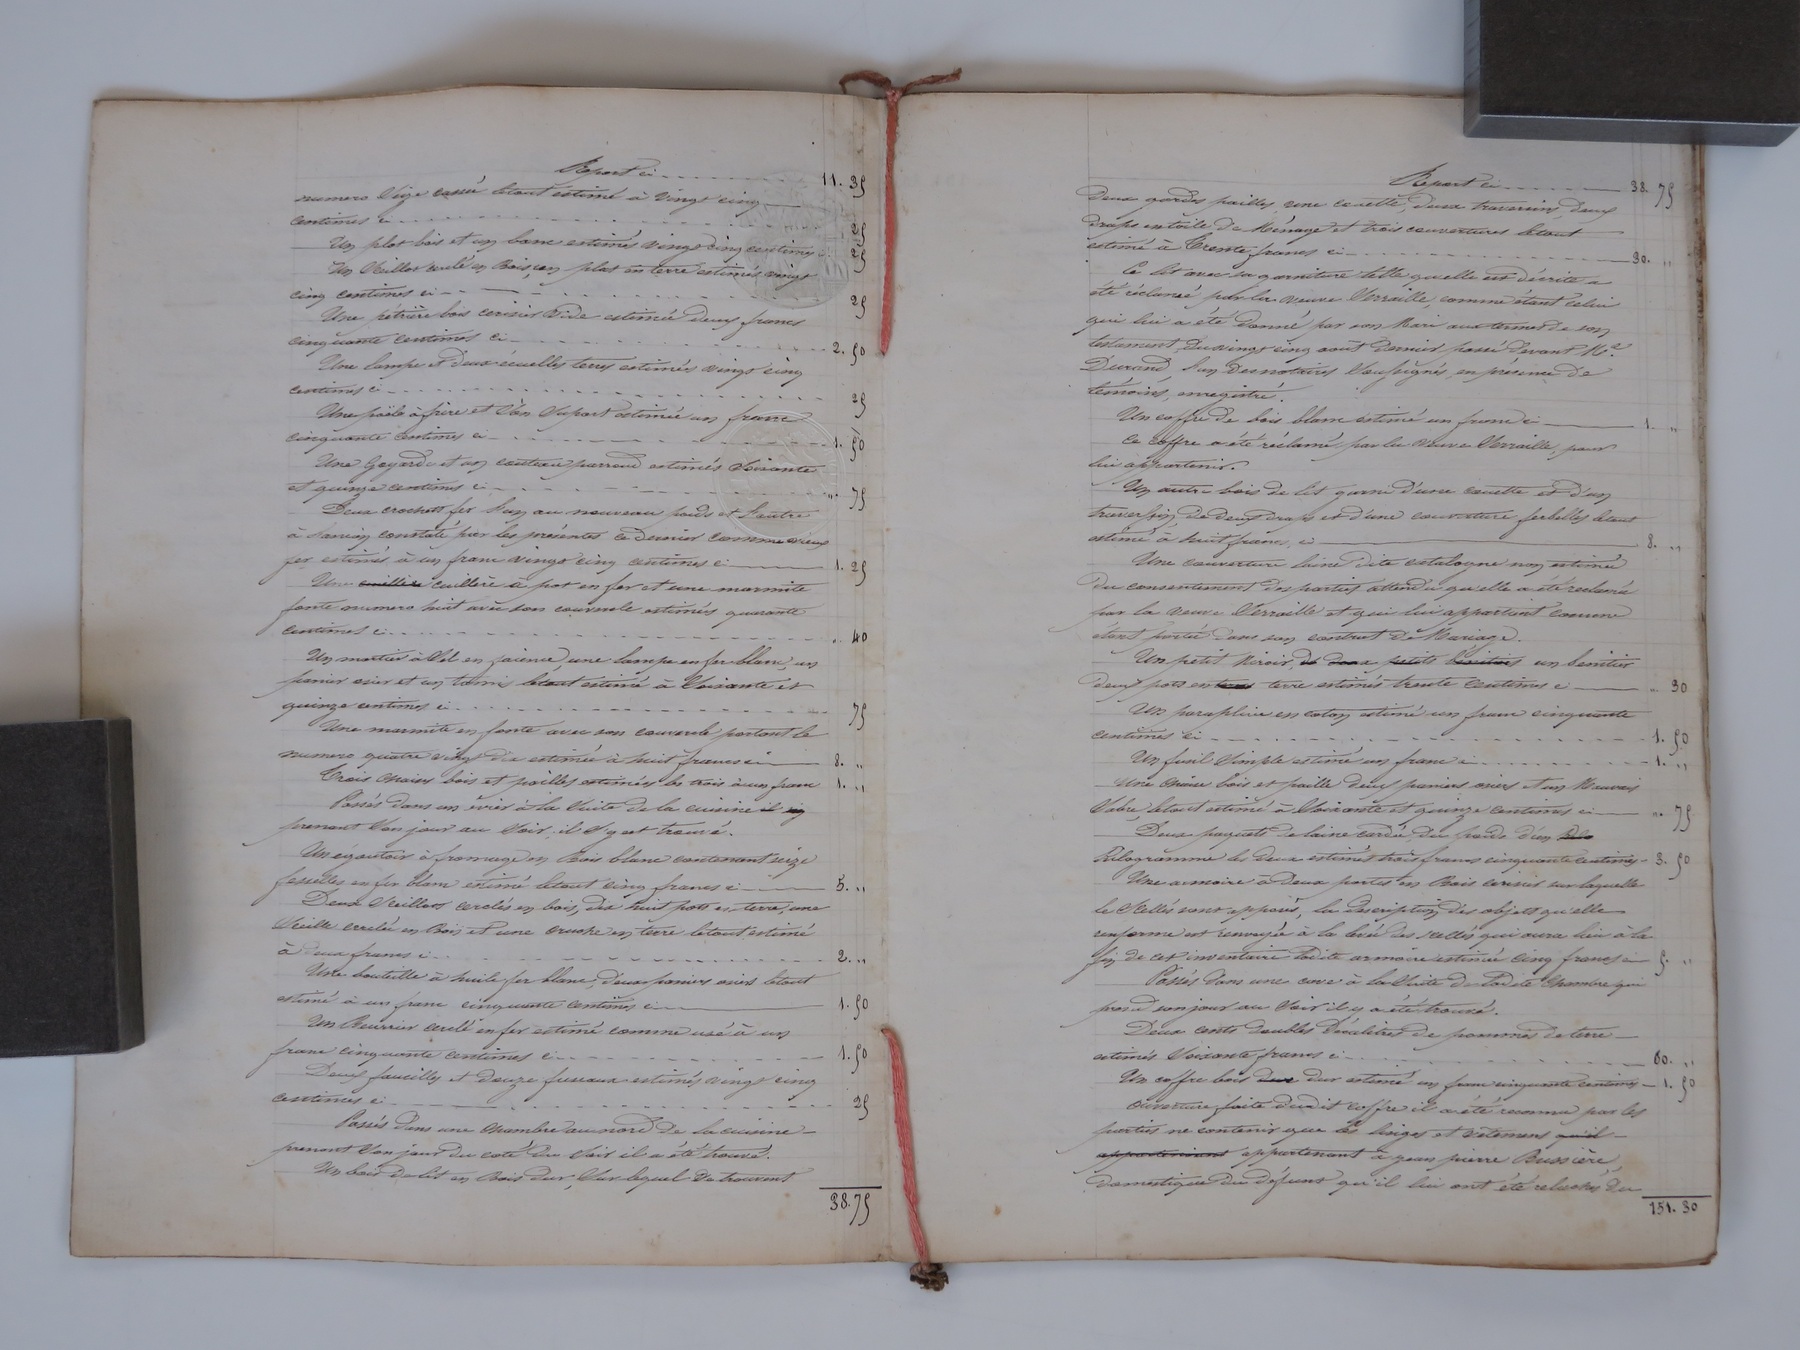 Report ci 11. 35
numero seize cassée letout estimé à vingt cinq
centimes ci 25
Un plat bois et un banc estimés vingt cinq centimes ci 25
Un seillot cerclé en Bois, un plat en terre estimés vingt
cinq centimes ci 25
Une petrière bois cerisier vide estimée deux francs
cinquante centimes ci 2. 50
Une lampe et deux écuelles terres estimées vingt cinq
centimes ci 25
Une poële à frire et son suport estimée un franc
cinquante centimes ci 1. 50
Une Goyarde et un couteau estimés soixante
et quinze centimes ci ". 75
Deux crochets fer l'un au nouveau poids et l'autre
à l'ancien constaté par les présentes ce dernier comme vieux
fer estimés à un franc vingt cinq centimes ci 1. 25
Une cuillère cuillère à pot en fer et une marmite
fonte numero huit avec son couvercle estimés quarante
centimes ci ". 40
Un mortier à sel en faience, une lampe en fer blanc, un
panier osier et un tamis letout estimé à soixante et
quinze centimes ci 75
Une marmite en fonte avec son couvercle portant le
numero quatre vingt dix estimée à huit francs ci 8. "
Trois chaises bois et pailles estimées les trois à un franc 1. "
Passés dans un évier à la suite de la cuisine il y
prenant son jour au soir, il s'y est trouvé.
Un égoutoir à fromage en Bois blanc contenant seize
faisselles en fer blanc estimé letout cinq francs ci 5. "
Deux seillots cerclés en bois, dix huit pots en terre, une
seille cerclée en Bois et une cruche en terre letout estimé
à deux francs ci 2. "
Une bouteille à huile fer blanc, deux paniers osiers letout
estimé à un franc cinquante centimes ci 1. 50
Un Beurrier cerclé en fer estimé comme usé à un
franc cinquante centimes ci 1. 50
Deux faucilles et douze fuseaux estimés vingt cinq
centimes ci 25
Passés dans une chambre au nord de la cuisine
prenant son jour du coté du soir il a été trouvé.
Un bois de lit en Bois dur, sur lequel se trouvent
38. 75
Report ci 38. 75
deux gardes pailles, une couette, deux traversins, deux
draps en toile de Ménage et trois couvertures letout
estimé à Trente francs ci 30. "
Ce lit avec sa garniture telle quelle est décrite a
été réclamé par la veuve Verraille, comme étant celui
qui lui a été donné par son Mari aux termes de son
testament du vingt cinq août dernier passé devant Me
Durand l'un des notaires soussignés, en presence de
témoins, enregistré.
Un coffre de bois blanc estimé un franc ci 1. "
Ce coffre a été réclamé par la veuve Verraille, pour
lui appartenir.
Un autre bois de lit garni d'une couette et d'un
traversin, de deux draps et d'une couverture letout
estimé à huit francs, ci 8. "
Une couverture laine dite catalogne non estimée
du consentement des parties attendu qu'elle a été réclamé
par la veuve Verraille et qui lui appartient comme
étant portée dans son contrat de Mariage.
Un petit Miroir, de deux petits bénitiers un benitier
deux pots en terre estimés trente centimes ci ". 30
Un parapluie en coton estimé un franc cinquante
centimes ci 1. 50
Un fusil simple estimé un franc ci 1. "
Une chaise bois et paille deux paniers osiers et un Mauvais
sabre, letout estimé à soixante et quinze centimes ci ". 75
Deux paquets de laine cardée, du poids d'un
Kilogramme les deux estimés trois francs cinquante centimes 3. 50
Une armoire à deux portes en Bois cerisier sur laquelle
le scellés sont apposés, la description des objets qu'elle
renferme est renvoyée à la levée des scellés qui aura lieu à la
fin de cet inventaire ladite armoire estimée cinq francs ci 5. "
Passés dans une cave à la suite de ladite chambre qui
prend son jour au soir il y a été trouvé.
Deux cents doubles décalitres de pommes de terre
estimés soixante francs ci 60. "
Un coffre bois dur estimé un franc cinquante centimes 1. 50
Ouverture faite dudit coffre il a été reconnu par les
parties ne contenir que les linges et vetemens qu'il
appartenant appartenant à jean pierre Bussière,
domestique du défunt qu'il lui ont été relachés du
151. 30